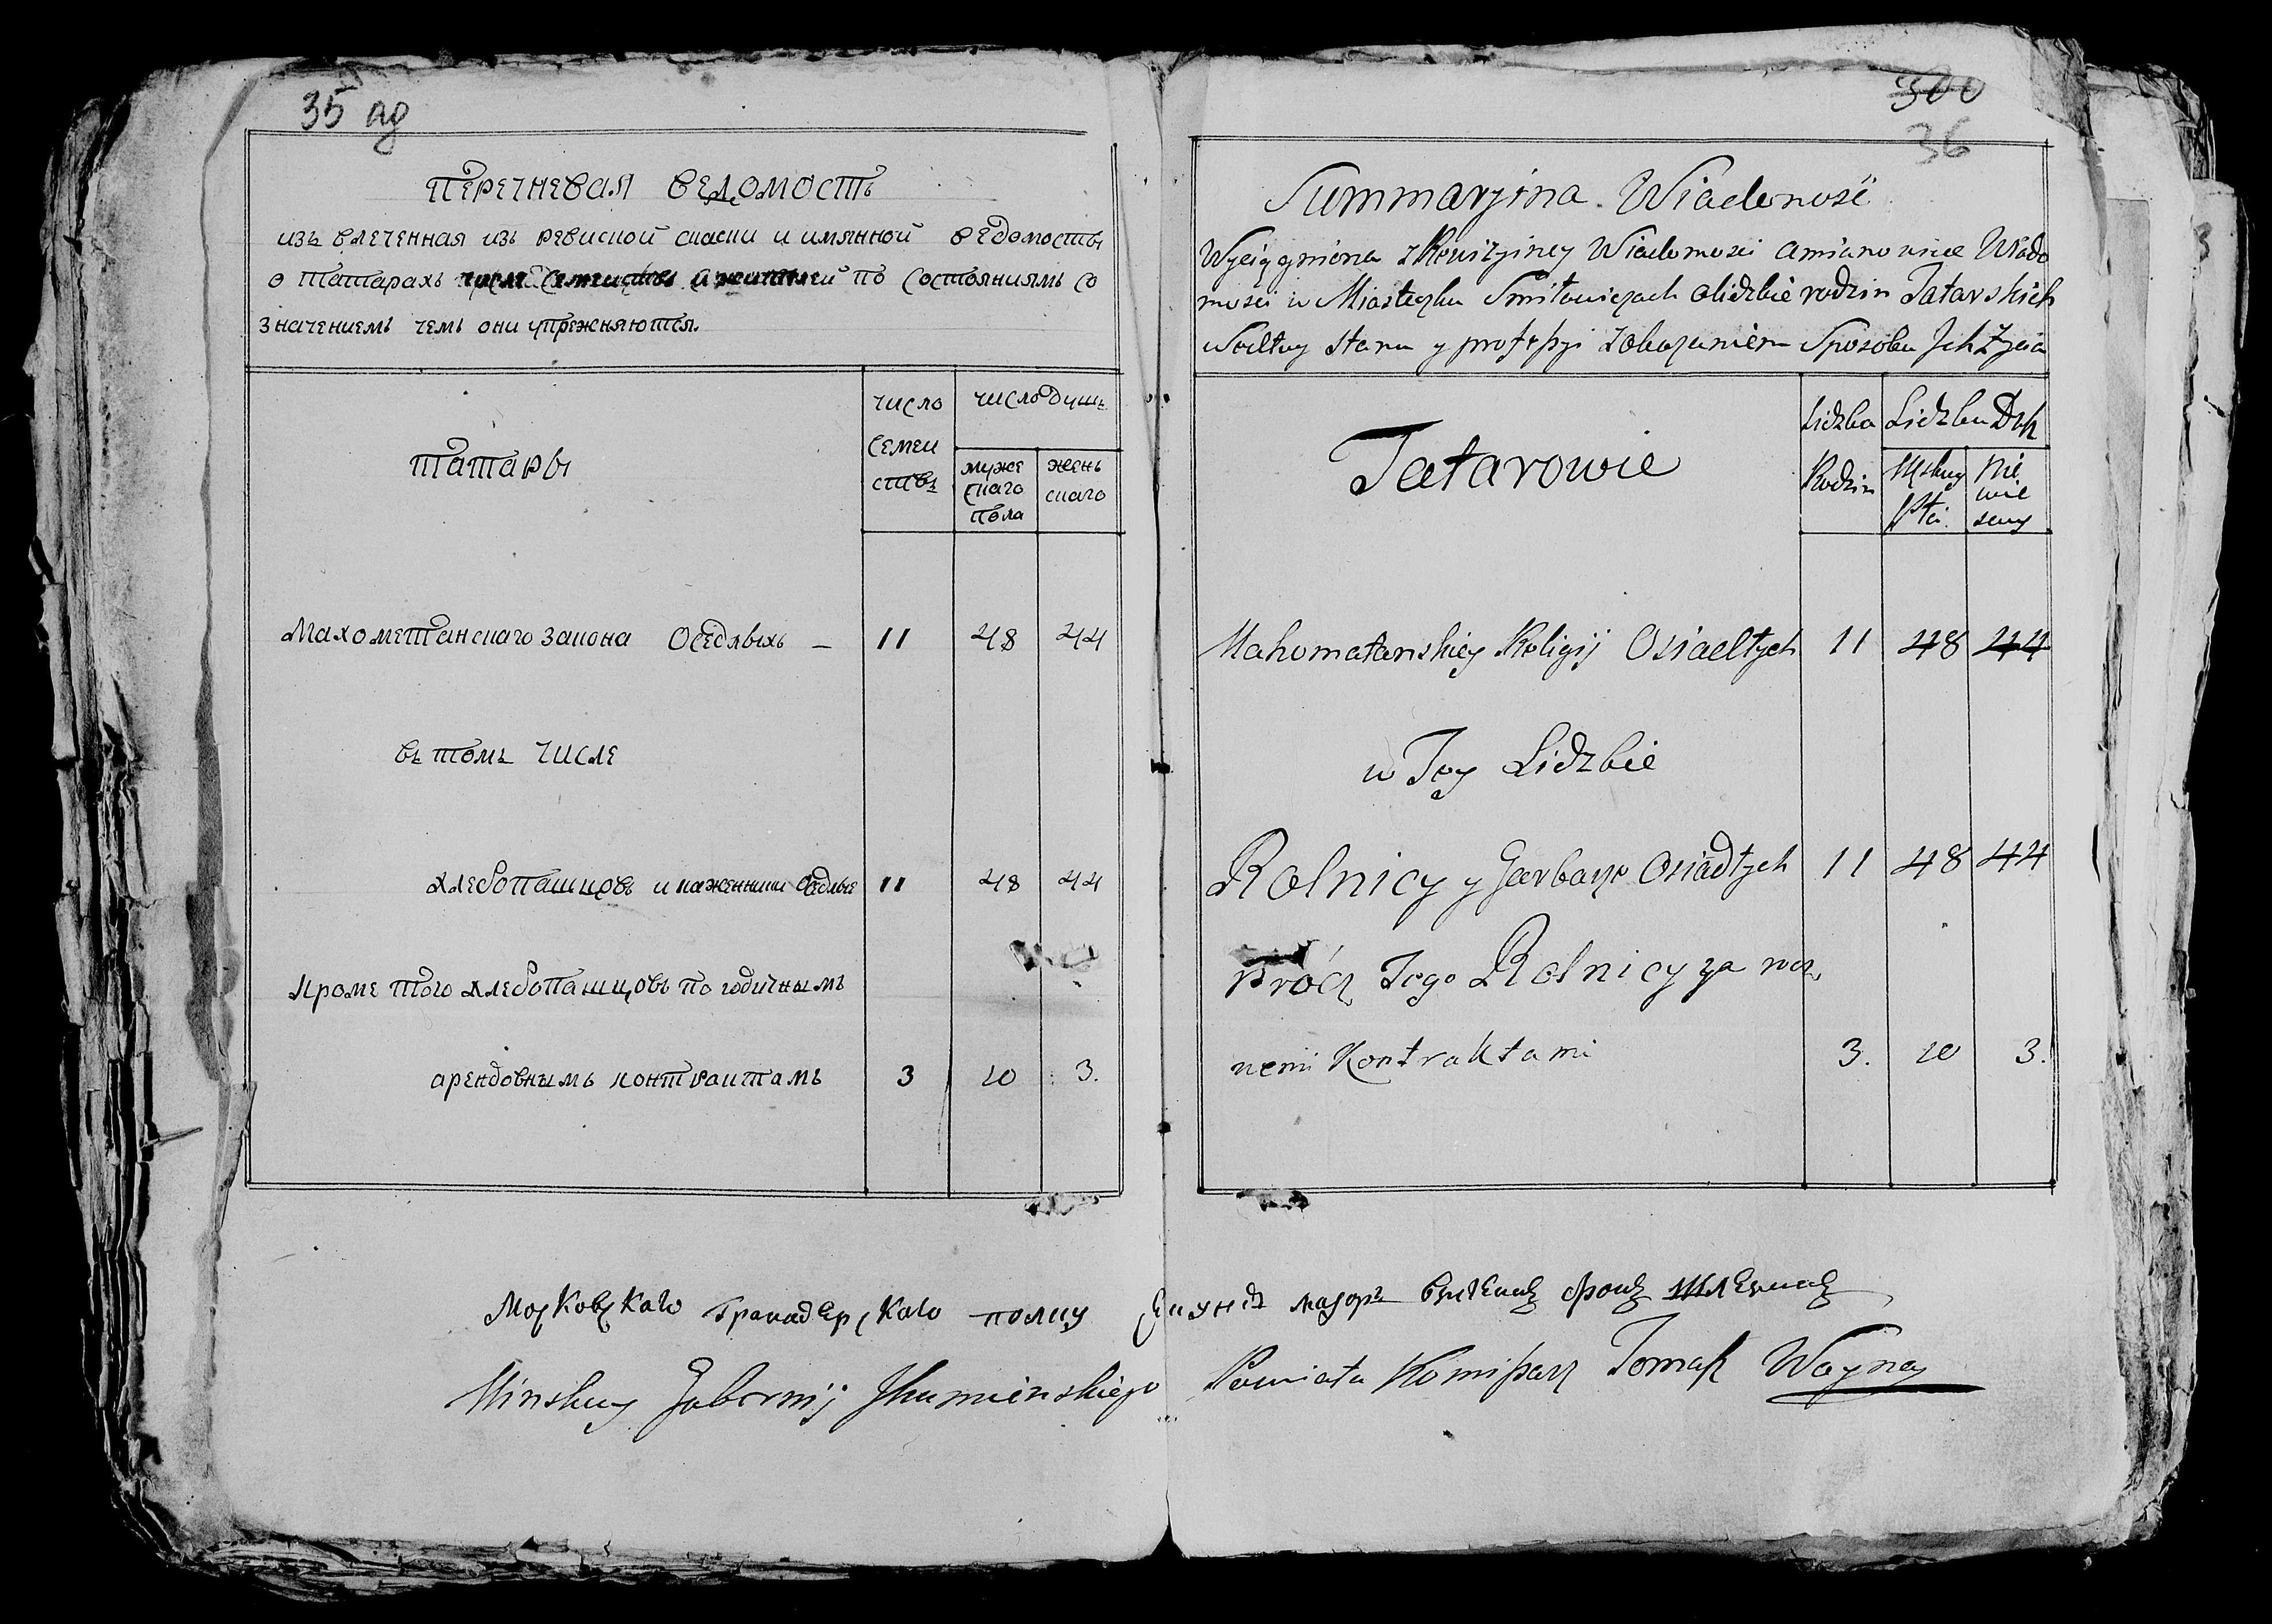 35 ад
ПЕРЕЧНЕВАЯ ВЕДОМОСТЬ
изъ влеченная изъ ревиской скаски и имянной ведомосты
о татарахъ по состояниямъ со
значениемъ чемъ они упрежняются.
татары
число семеи ствъ
число душъ
муже скаго пола
жень скаго
Махометанскаго закона Оседлыхъ — 11 48 44
въ томъ числе
хлебопашцовъ и кажевники оседлые 11 48 44
кроме того хлебопашцовъ по годичнымъ
арендовнымъ контрактамъ 3 10 3.
300
36
Summaryina Wiadomość
Wyciągniona z Rewizyiney Wiadomosci a mianowicie Wiado
mosci w Miasteczku Smiłowiczach o lidzbie rodzin Tatarskich
Wedlug stanu y professyi z okazaniem Sposobu Jch Życia
Tatarowie
Lidzba Rodzin
Lidzba Dusz
Męskiey Płci.
Nie wie sciey
Mahometanskiey Religij Osiadłych 11 48 44
w Tey Lidzbie
Rolnicy y Garbarze Osiadłych 11 48 44
Prócz Tego Rolnicy za rocz
nemi Kontraktami 3. 10 3.
Московскаго Гранадерскаго полку Секундъ маэоръ
Minskiey Gubernij Jhumienskiego Powiatu Komissarz Tomasz Woyna